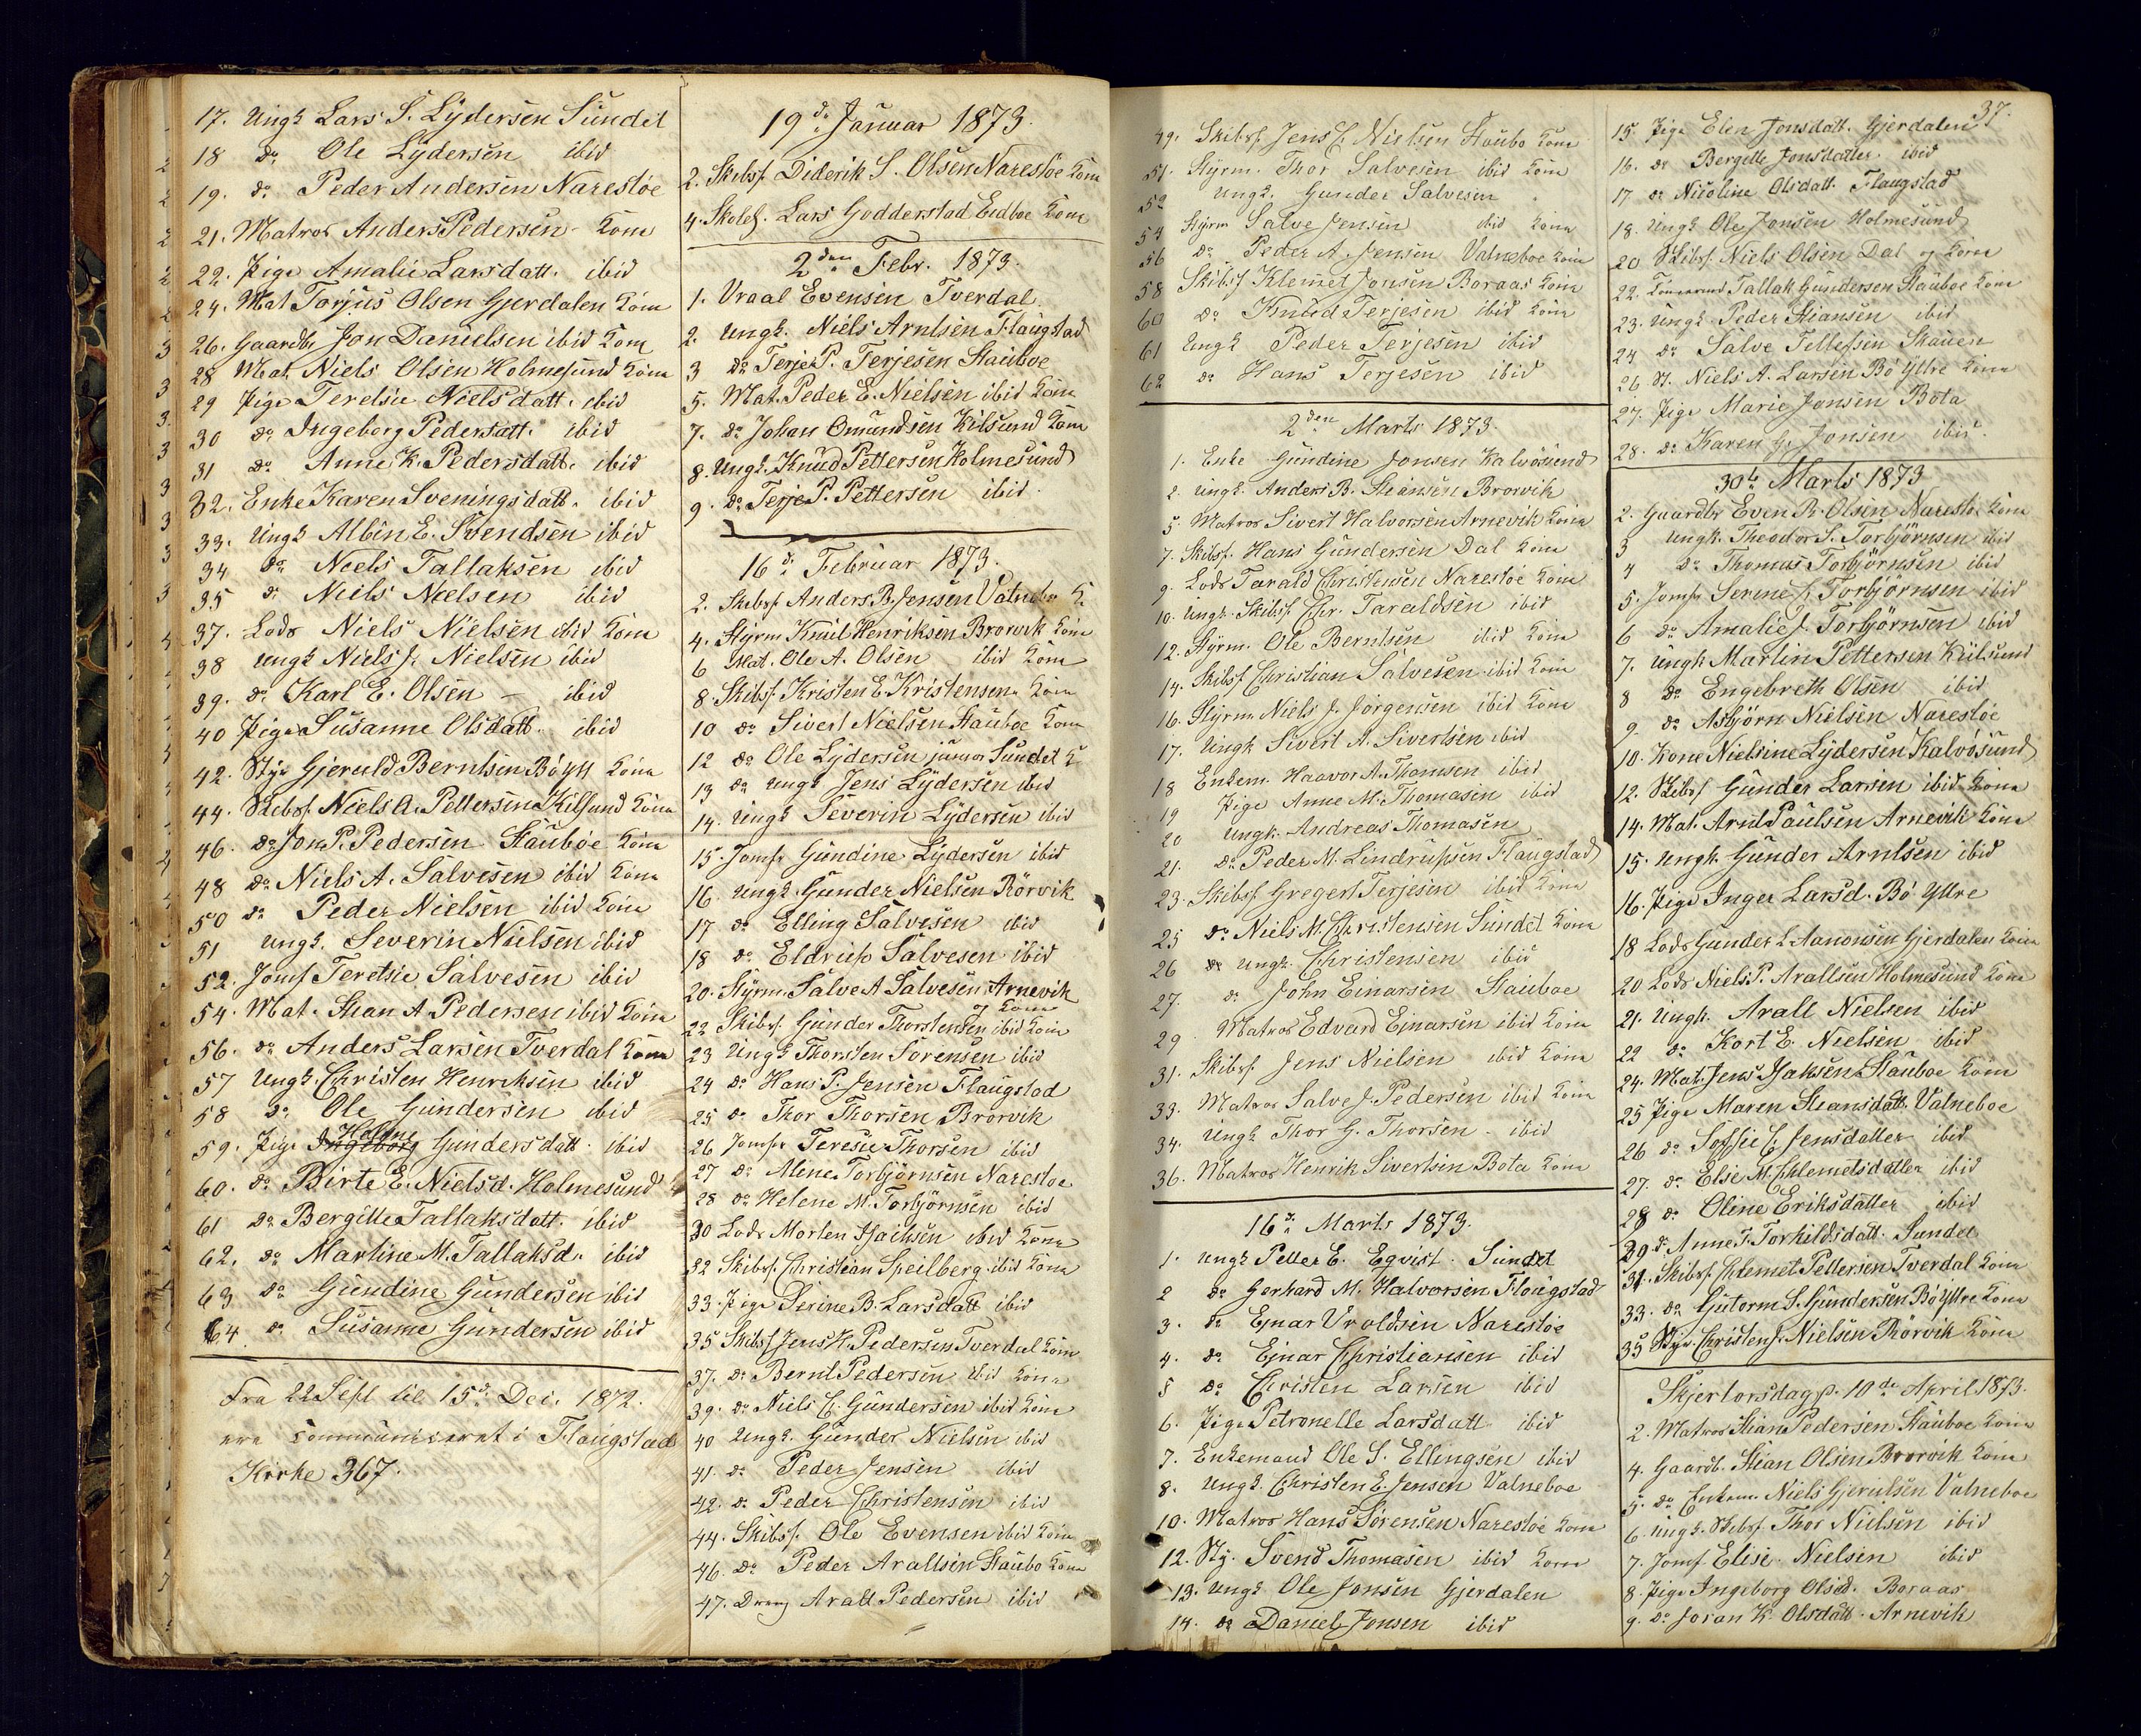 17. Ungk Lars S. Lydersen Sundet
18 do Ole Lydersen ibid
19. do Peder Andersen Narestøe
21. Matros Anders Pedersen - Kone
22. Pige Amalie Larsdatt. ibid
24. Mat Torjus Olsen Gjerdalen Kone
26. Gaardbr Jon Danielsen ibid Kone
28 Mat. Niels Olsen Holmesund Kone
29 Pige Terelsie Nielsdatt. ibid
30 do Ingeborg Pedersdatt. ibid
31 do Anne K. Pedersdatt. ibid
32. Enke Karen Sveningsdatt. ibid
33. Ungk Albin E. Svendsen ibid
34 do Neels Tallaksen ibid
35 do Niels Neelsen ibid
37. Lods Niels Nielsen ibid Kone
38 Ungk Niels J. Nielsen ibid
39. do Karl E. Olsen - ibid
40 Pige Susanne Olsdatt. ibid
42. Styr Gjeruld Berntsen Bö Kone
44. Skibsf. Niels A. Pettersen Kilsund Kone
46. do Jon P. Pedersen Stauboe Kone
48 do Niels A. Salvesen ibid Kone
50 do Peder Nielsen ibid Kone
51 Ungk. Severin Nielsen ibid
52. Jomf Teretsie Salvesen ibid
54. Mat. Stian A Pedersen ibid Kone
56. do Anders Larsen Tverdal Kone
57 Ungk. Christen Henriksen ibid
58 do Ole Gundersen ibid
59. Pige Helene Gundersdatt. ibid
60. do Birte E. Nielsd. Holmesund
61 do Bergitte Tallaksdatt. ibid
62. do Martine M. Tallaksd. ibid
63 do Gundine Gundersen ibid
64. do Susanne Gundersen ibid
Fra 22 Sept til 15d. Dec. 1872.
ere communiceret i Flaugstad
Kirke 367.
19d. Januar 1873.
2. Skibsf. Diderik S. Olsen Narestøe Kone
4. Skolel. Lars Godderstad Eidboe Kone
2den Febr. 1873.
1. Vraal Evensen Tverdal.
2. Ungk. Niels Arntsen Flaugstad
3 do Terje P. Terjesen Stauboe
5. Mat. Peder E. Nielsen ibid Kone
7. do Johan Omundsen Kilsund Kone
8. Ungk. Knud Pettersen Holmesund
9. do Terje P. Pettersen ibid.
16d. Februar 1873.
2. Skibsf. Anders B. Jensen Valneboe K.
4. Styrm Knut Henriksen Brorvik Kone
6 Mat. Ole A. Olsen - ibid Kone
8. Skibsf. Kristen E. Kristensen Kone
10 do Sivert Nielsen Stauboe Kone
12 do Ole Lydersen junior Sundet K
13 do Ungk Jens Lydersen ibid
14. Ungk Severin Lydersen ibid
15. Jomfr Gundine Lydersen ibid
16. Ungk Gunder Nielsen Rörvik
17 do Elling Salvesen ibid
18 do Eldrup Salvesen ibid
20. Styrm. Salve A Salvesen Arnevik
og Kone
22 Skibsf. Gunder Thorstensen ibid Kone
23 Ungk Thorsten Sörensen ibid
24 do Hans P. Jensen Flaugstad
25 do Thor Thorsen Brorvik
26 Jomfr Teresie Thorsen ibid
27 do Alene Torbjörnsen Narestøe
28 do Helene M. Torbjörnsen ibid
30 Lods Morten Isaksen ibid Kone
32 Skibsf. Christian Speilberg ibid Kone
33. Pige Serine B. Larsdatt ibid
35 Skibsf Jens H. Pedersen Tverdal Kone
37. do Bernt Pedersen ibid Kone
39. do Niels C. Gundersen ibid Kone
40 Ungk. Gunder Nielsen ibid
41. do Peder Jensen ibid
42. do Peder Christensen ibid
44. Skibsf. Ole Evensen ibid Kone
46. do Peder Arallsen Staubo Kone
47. Dreng Arall Pedersen ibid
37.
49. Skibsf. Jens C. Nielsen Staubo Kone
51. Styrm. Thor Salvesen ibid Kone
52 Ungk. Gunder Salvesen
54 Styrm Salve Jensen ibid Kone
56 do Peder A. Jensen Valneboe Kone
58 Skibsf Klemet Jonsen Boraas Kone
60 do Knud Terjesen ibid Kone
61 Ungk Peder Terjesen ibid
62 do Hans Terjesen ibid
2den Marts 1873.
1. Enke Gundine Jonsen Kalvösund
2. Ungk. Anders B. Stiansen Brorvik
5. Matros Sivert Halvorsen Arnevik Kone
7. Skibsf. Hans Gundersen Dal Kone
9. Lods Tarald Christensen Narestøe Kone
10. Ungk. Skibsf. Chr. Taraldsen ibid
12. Styrm. Ole Berntsen ibid Kone
14. Skibsf Christian Salvesen ibid Kone
16. Styrm Niels J. Jörgensen ibid Kone
17. Ungk Sivert A. Sivertsen ibid
18 Enkem. Haavor A. Thomsen ibid
19 Pige Anne M. Thomasen ibid
20 Ungk. Andreas Thomasen
21. do Peder M. Lindrupsen Flaugstad
23. Skibsf Gregert Terjesen ibid Kone
25 do Niels M. Christensen Sundet Kone
26 do Ungk. Christensen ibid
27. do John Einarsen Stauboe
29. Matros Edvard Einarsen ibid Kone
31. Skibsf. Jens Nielsen ibid Kone
33. Matros Salve J. Pedersen ibid Kone
34. Ungk Thor G. Thorsen - ibid
36. Matros Henrik Sivertsen Bota Kone
16d. Marts 1873.
1. Ungk Petter E. Eqvist. Sundet
2 do Gerhard M. Halvorsen Flaugstad
3. do Ejnar Vroldsen Narestøe
4. do Ejnar Christiansen ibid
5 do Christen Larsen ibid
6. Pige Petronelle Larsdatt ibid
7. Enkemand Ole S. Ellingsen ibid
8. Ungk. Christen E. Jensen Valneboe
10. Matros Hans Sörensen Narestøe Kone
12. Sty. Svend Thomasen ibid Kone
13. Ungk Ole Jonsen Gjerdalen
14. do Daniel Jonsen ibid
15. Pige Elen Jonsdatt. Gjerdalen
16. do Bergitte Jonsdatter ibid
17. do Nicoline Olsdatt. Flaugstad
18. Ungk Ole Jonsen Holmesund
20 Skibsf. Niels Olsen Dal og Kone
22. Tallak Gundersen Stauboe Kone
23. Ungk Peder Stiansen ibid
24 do Salve Tellefsen Skauen
26 St. Niels A. Larsen Bö Yttre Kone
27. Pige Marie Jonsen Bota
28. do Karen G. Jonsen ibid.
30te Marts 1873
2. Gaardbr Even R. Olsen Narestøe Kone
3 Ungk. Theodor S. Torbjörnsen ibid
4 do Thomas Torbjörnsen ibid
5. Jomfr Serine J. Torbjörnsen ibid
6 do Amalie J. Torbjörnsen ibid
7. Ungk Martin Pettersen Kilsund
8 do Engebreth Olsen ibid
9. do Asbjörn Nielsen Narestøe
10. Kone Nielsine Lydersen Kalvösund
12. Skibsf Gunder Larsen ibid Kone
14. Mat. Arnt Paulsen Arnevik Kone
15. Ungk. Gunder Arntsen ibid
16. Pige Inger Larsd. Bö Yttre
18 Lods Gunder L Aanonsen Gjerdalen Kone
20 Lods Niels P. Arallsen Holmesund Kone
21. Ungk. Arall Nielsen ibid
22 do Kort E. Nielsen ibid
24. Mat. Jens Isaksen Stauboe Kone
25 Pige Maren Stiansdatt. Valneboe
26 do Soffie C. Jensdatter ibid
27. do Else M. Chlemetsdatter ibid
28 do Oline Eriksdatter ibid
29. do Anne T. Torkildsdatt. Sundet
31. Skibsf Chlemet Pettersen Tverdal Kone
33. do Gutorm S. Gundersen Bö Yttre Kone
35 Styr. Christen J. Nielsen Rörvik Kone
Skjertorsdag p. 10de April 1873.
2. Matros Stian Pedersen Stauboe Kone
4. Gaardb. Stian Olsen Brorvik Kone
5. do Enkem. Niels Gjerulsen Valneboe
6. Ungk. Skibsf. Thor Nielsen ibid
7. Jomf Elise Nielsen ibid
8. Pige Ingeborg Olsd. Boraas
9. do Joran K. Olsdatt. Arnevik